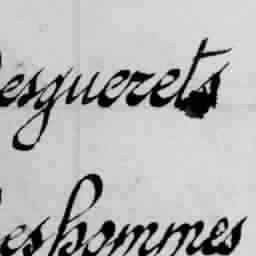 Desguerets
Deshommes